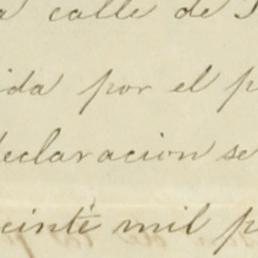 a calle de
ida por el p
declaracion se
cinte mil p